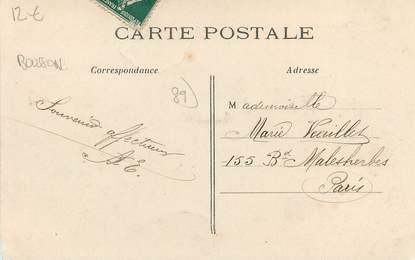 12-€
CARTE POSTALE
Correspondance
Adresse
89
Mademoiselle
Souvenir affectueux
Marie Vaillet
155 Bd Malesherbes
Paris